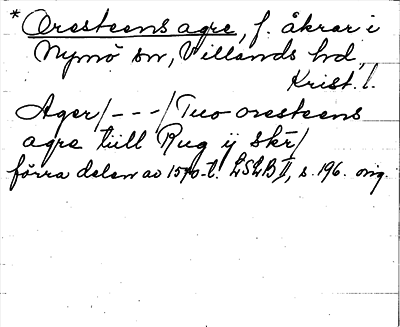 * Oresteens agre, f. åkrar i
Nymö sn, Villands hd,
Krist. l.
Ager/---/Tuo oresteens
agre tiill Rug ij skr/
förra delen av 1570-t. LSLB II, s. 196. orig.